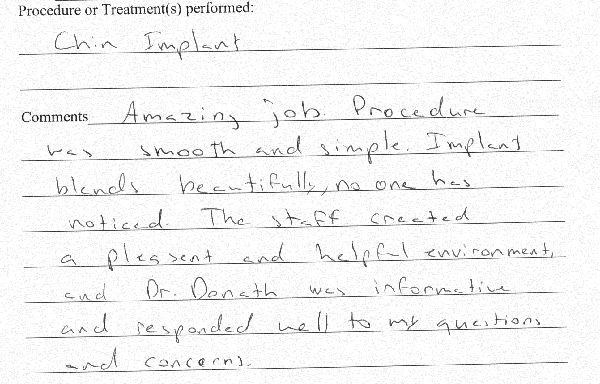 Procedure or Treatment(s) performed:
Chin Implant
Comments Amazing job. Procedure
was smooth and simple. Implant
blends beautifully, no one has
noticed. The staff created
a plessent and helpful environment,
and Dr. Donath was informative
and responded well to my questions
and concerns.